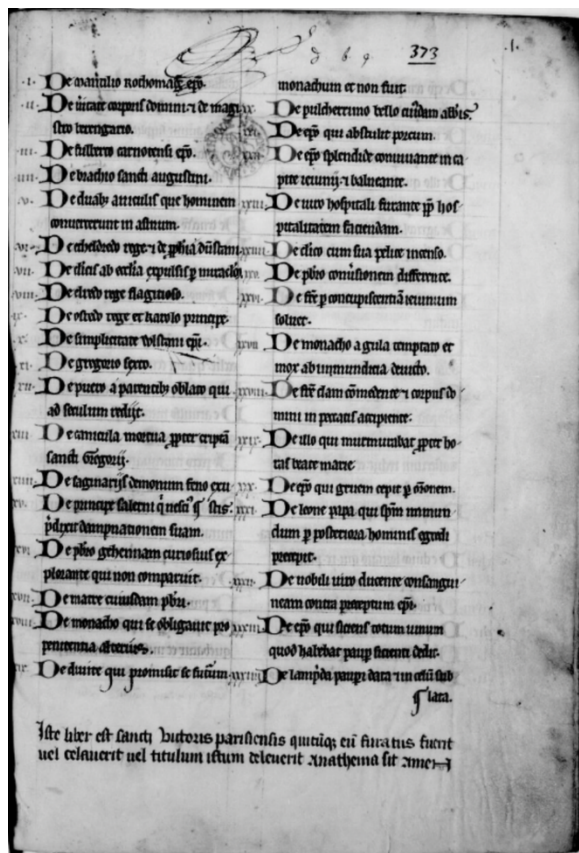 373 .I.
.i. De maurilio Rothomagi epo.
.ii. De uitate corporis domini ⁊ de magi
stro berengario.
.iii. De fulberto carnotensi epo.
.iiii. De brachio sancti augustini.
.v. De duab; aniculis que hominem
conuerterunt in asinum.
.vi. De etheldredo rege ⁊ de pphia dunstani
.vii. De clicis ab ecclia expulsis p miraclm
.viii. De rege flagitioso.
.ix. De rege et haroldo principe.
.x. De simplicitate Wlstani epi.
.xi. De gregorio sexto.
.xii. De puero a parentib; oblato qui
ad seculum rediit.
.xiii. De canicula mortua ppter criptam
sancti Gregorij.
.xiiii. De demonum feno
.xv. De principe salerni
pdixit dampnationem suam.
.xvi. De pbro gehennam curiosius ex
plorante qui non comparuit.
.xvii. De matre cuiusdam pbri.
.xviii. De monacho qui se obligauit pro
penitentia
.xix. De diuite qui promisit se futurum
monachum et non fuit.
.xx. De pulcherrimo bello cuiusdam abbis.
.xxi. De epo qui abstulit porcum.
.xxii. De epo splendide conuiuante in ca
pite ieiunij ⁊ balneante.
.xxiii. De uico hospitali furante pp hos
pitalitatem faciendam.
.xxiiii. De clico cum sua pelice incenso.
.xxv. De pbro conuersionem differente.
.xxvi. De fre p concupiscentiā ieiunium
soluere.
.xxvii. De monacho a gula temptato et
mox ab inmundicia deuicto.
.xxviii. De fre clam comedente ⁊ corpus do
mini in peccatis accipiente.
.xxix. De illo qui murmurabat ppter ho
ras beate marie
.xxx. De epo qui gruem cepit p oronem.
.xxxi. De leone papa qui spm inmun
dum p posteriora hominis egredi
precepit.
.xxxii. De nobili uiro ducente consangui
neam contra preceptum epi.
.xxxiii. De epo qui sitiens totum uinum
quod habebat paupi sitienti dedit.
.xxxiiii. De lampada paupi data ⁊ in celum sub
lata.
Iste liber est sancti Victoris parisiensis quicūq; eū furatus fuerit
uel celauerit uel titulum istum deleuerit Anathema sit amen